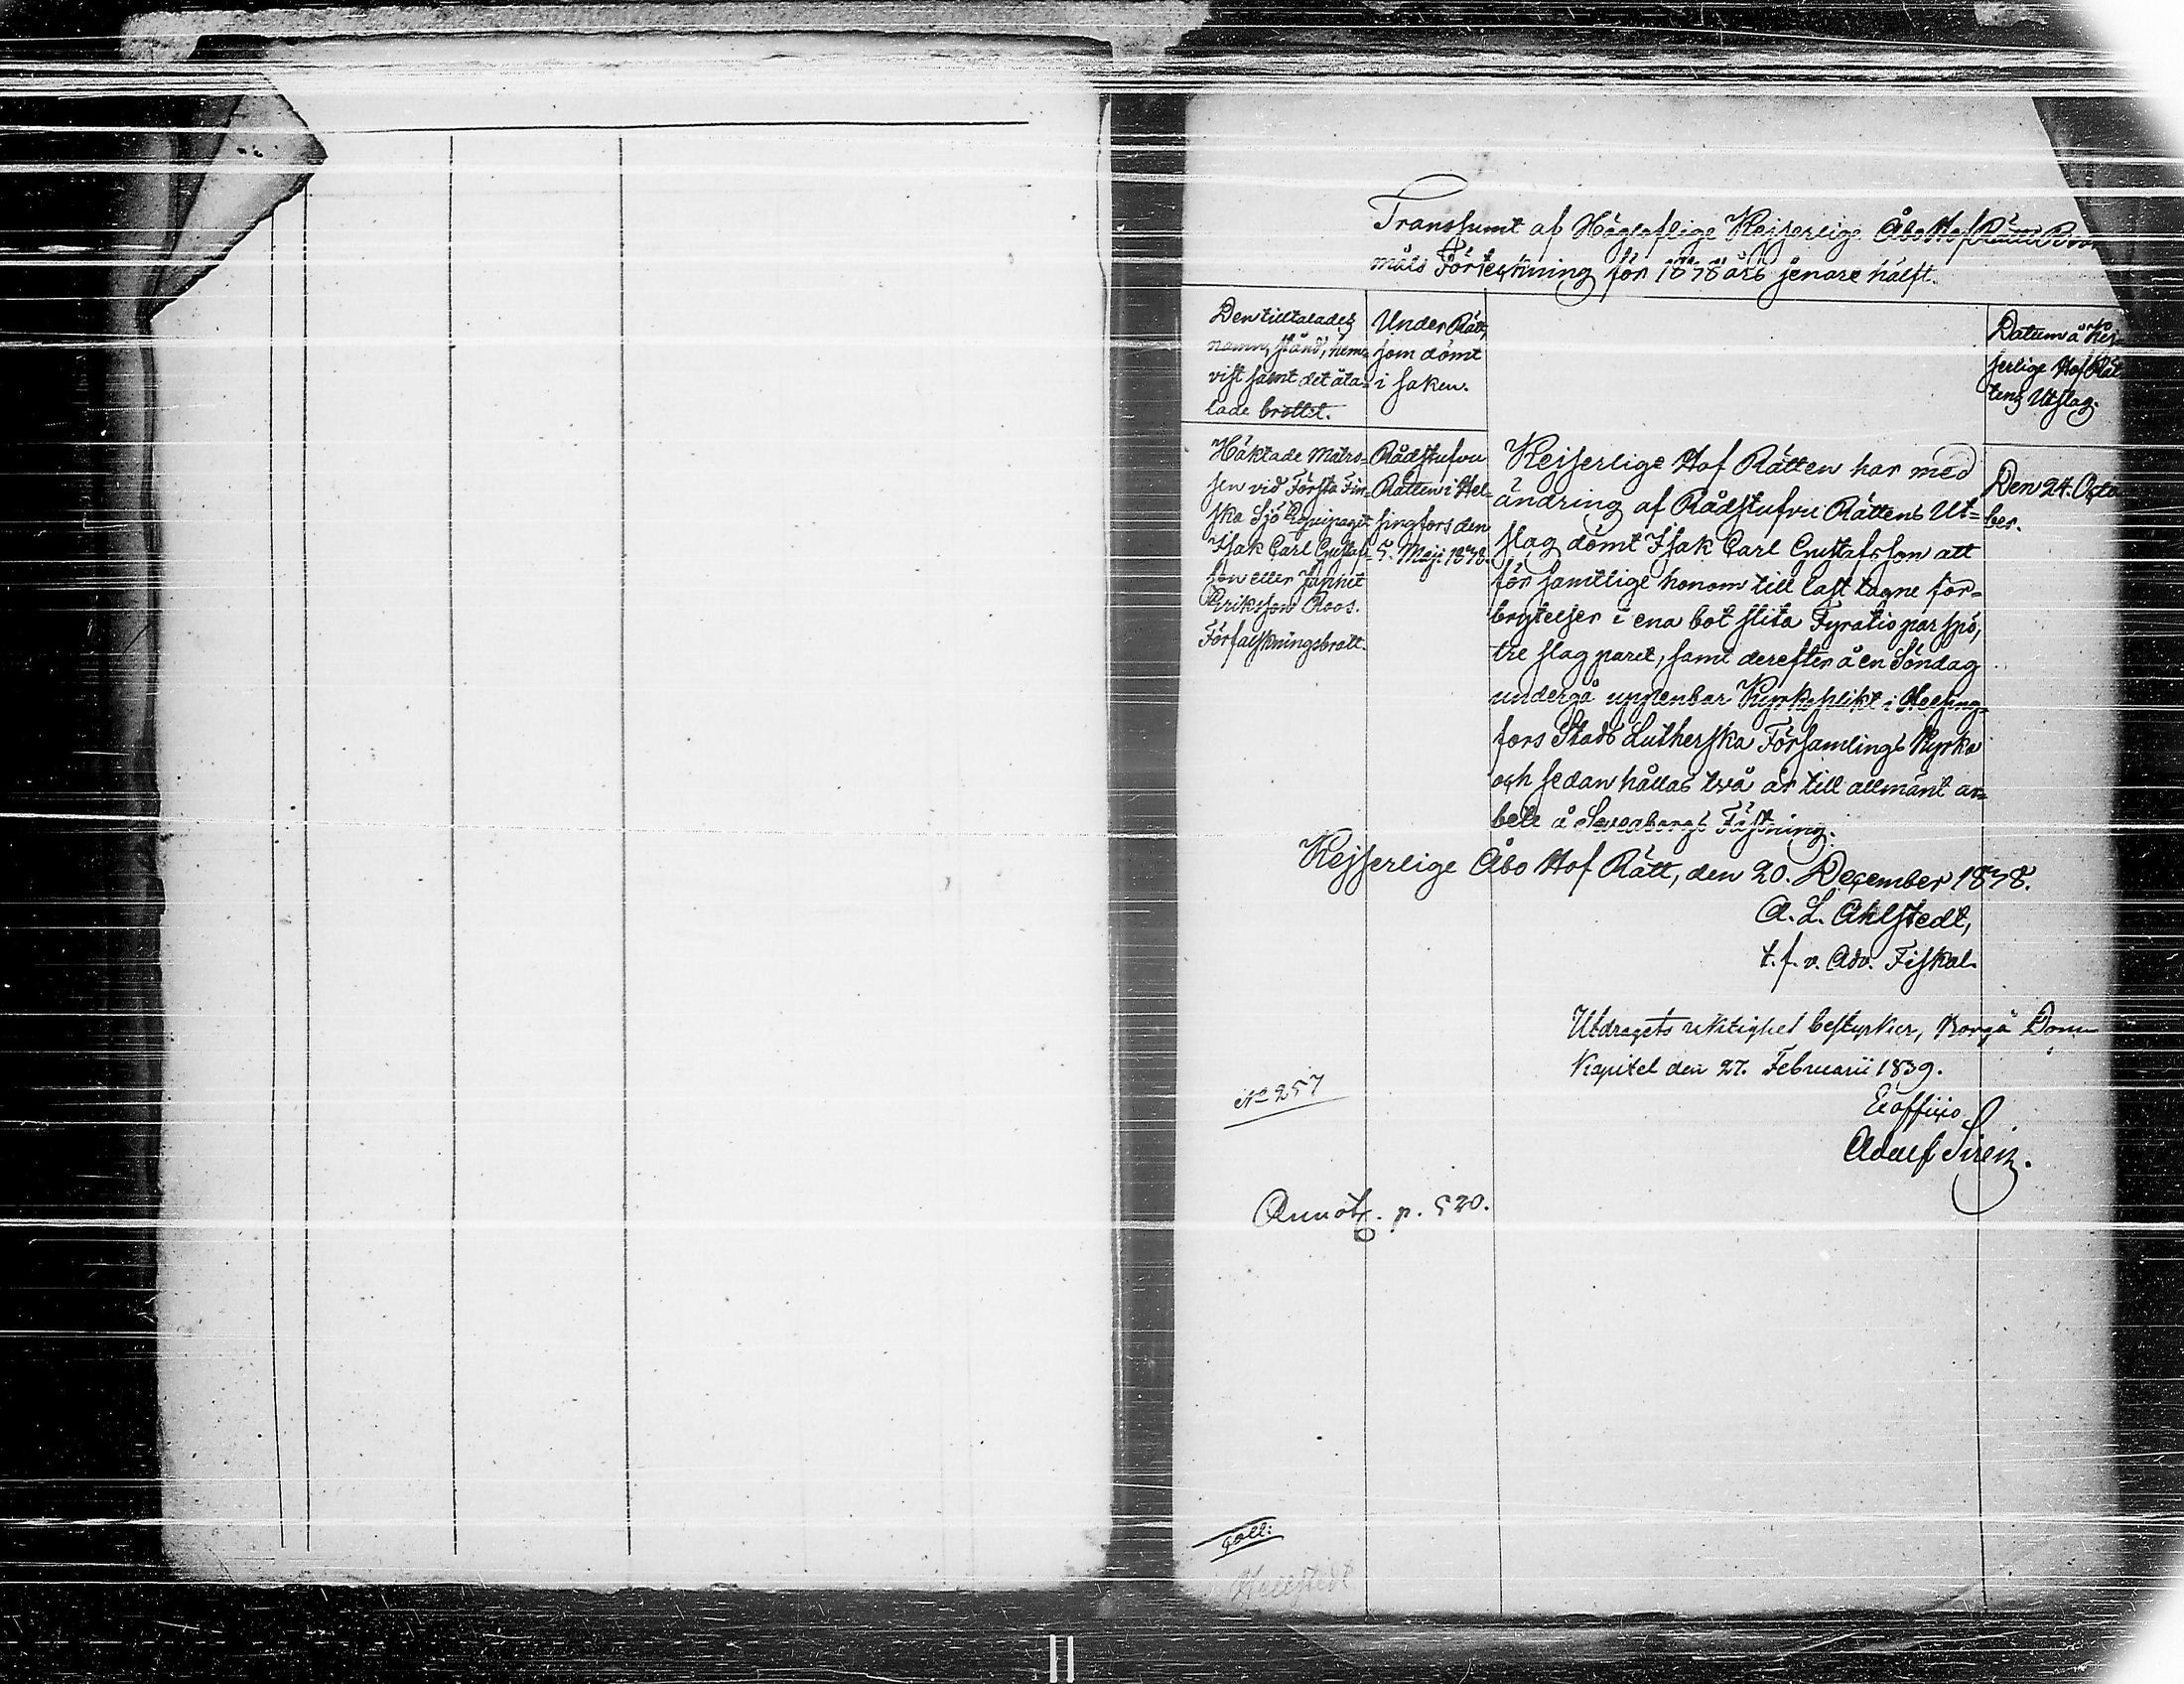 Transsumt af Höglofliga Kejserliga Åbo HofRätts Bro
måls Förteckning för 1838 års senare hälft.
Den tilltalades
namn, stånd, hem-
vist samt det åta-
lade brottet.
Under Rätt,
som dömt
i saken.
Datum å Kej-
serlige Hof Rät
tens Utslag.
Häktade Matro-
sen vid Första Fin-
ska Sjö Equipaget
Isak Carl Gustafs-
son eller Jannit
Eriksson Roos.
Förfalskningsbrott.
Rådstufvu
Rätten i Hel-
singfors den
5. Maji 1838.
Kejserlige Hof Rätten har med
ändring af Rådstufvu Rättens Ut-
slag dömt Isak Carl Gustafsson att
för samtlige honom till last tagne för-
brytelser i ena bot slita Fyratio par spö,
tre slag paret, samt derefter å en Söndag
undergå uppenbar Kyrkoplikt i Helsing-
fors Stads Lutherska Församlings Kyrka
och sedan hållas två år till allmänt ar-
bete å Sveaborgs Fästning.
Den 24. Octo
ber.
Kejserlige Åbo Hof Rätt, den 20. December 1838.
A. L. Ahlstedt,
t. f. v. Adv. Fiskal.
Utdragets riktighet bestyrker, Borgå Dom
Kapitel den 27. Februarii 1839.
Ex officio
Adolf Sirén.
No 257
Annot. p. 520.
Coll:
Hellstedt